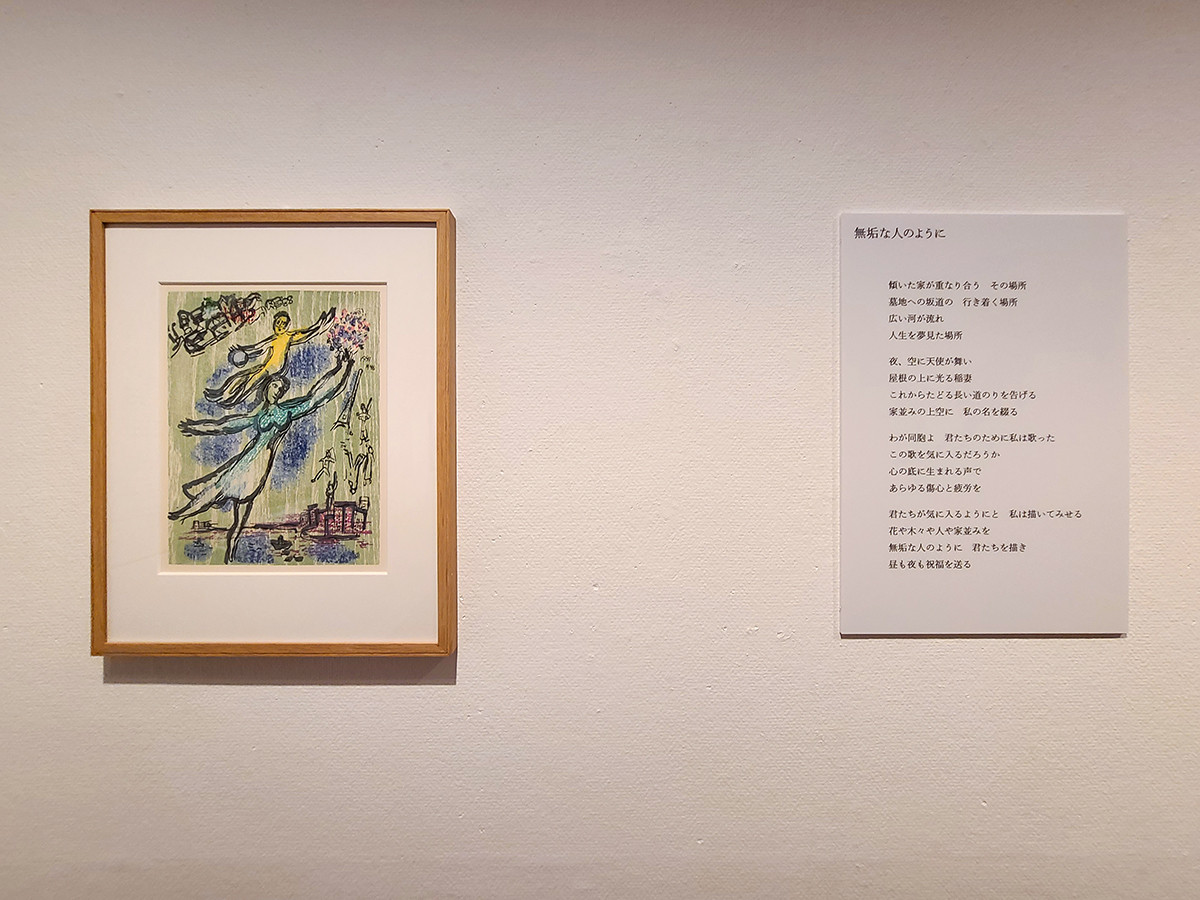 無垢な人のように
傾いた家が重なり合う　その場所
墓地への坂道の　行き着く場所
広い河が流れ
人生を夢見た場所
夜、空に天使が舞い
屋根の上に光る稲妻
これからたどる長い道のりを告げる
家並みの上空に　私の名を綴る
わが同胞よ　君たちのために私は歌った
この歌を気に入るだろうか
心の底に生まれる声で
あらゆる傷心と疲労を
君たちが気に入るようにと　私は描いてみせる
花や木々や人や家並みを
無垢な人のように　君たちを描き
昼も夜も祝福を送る